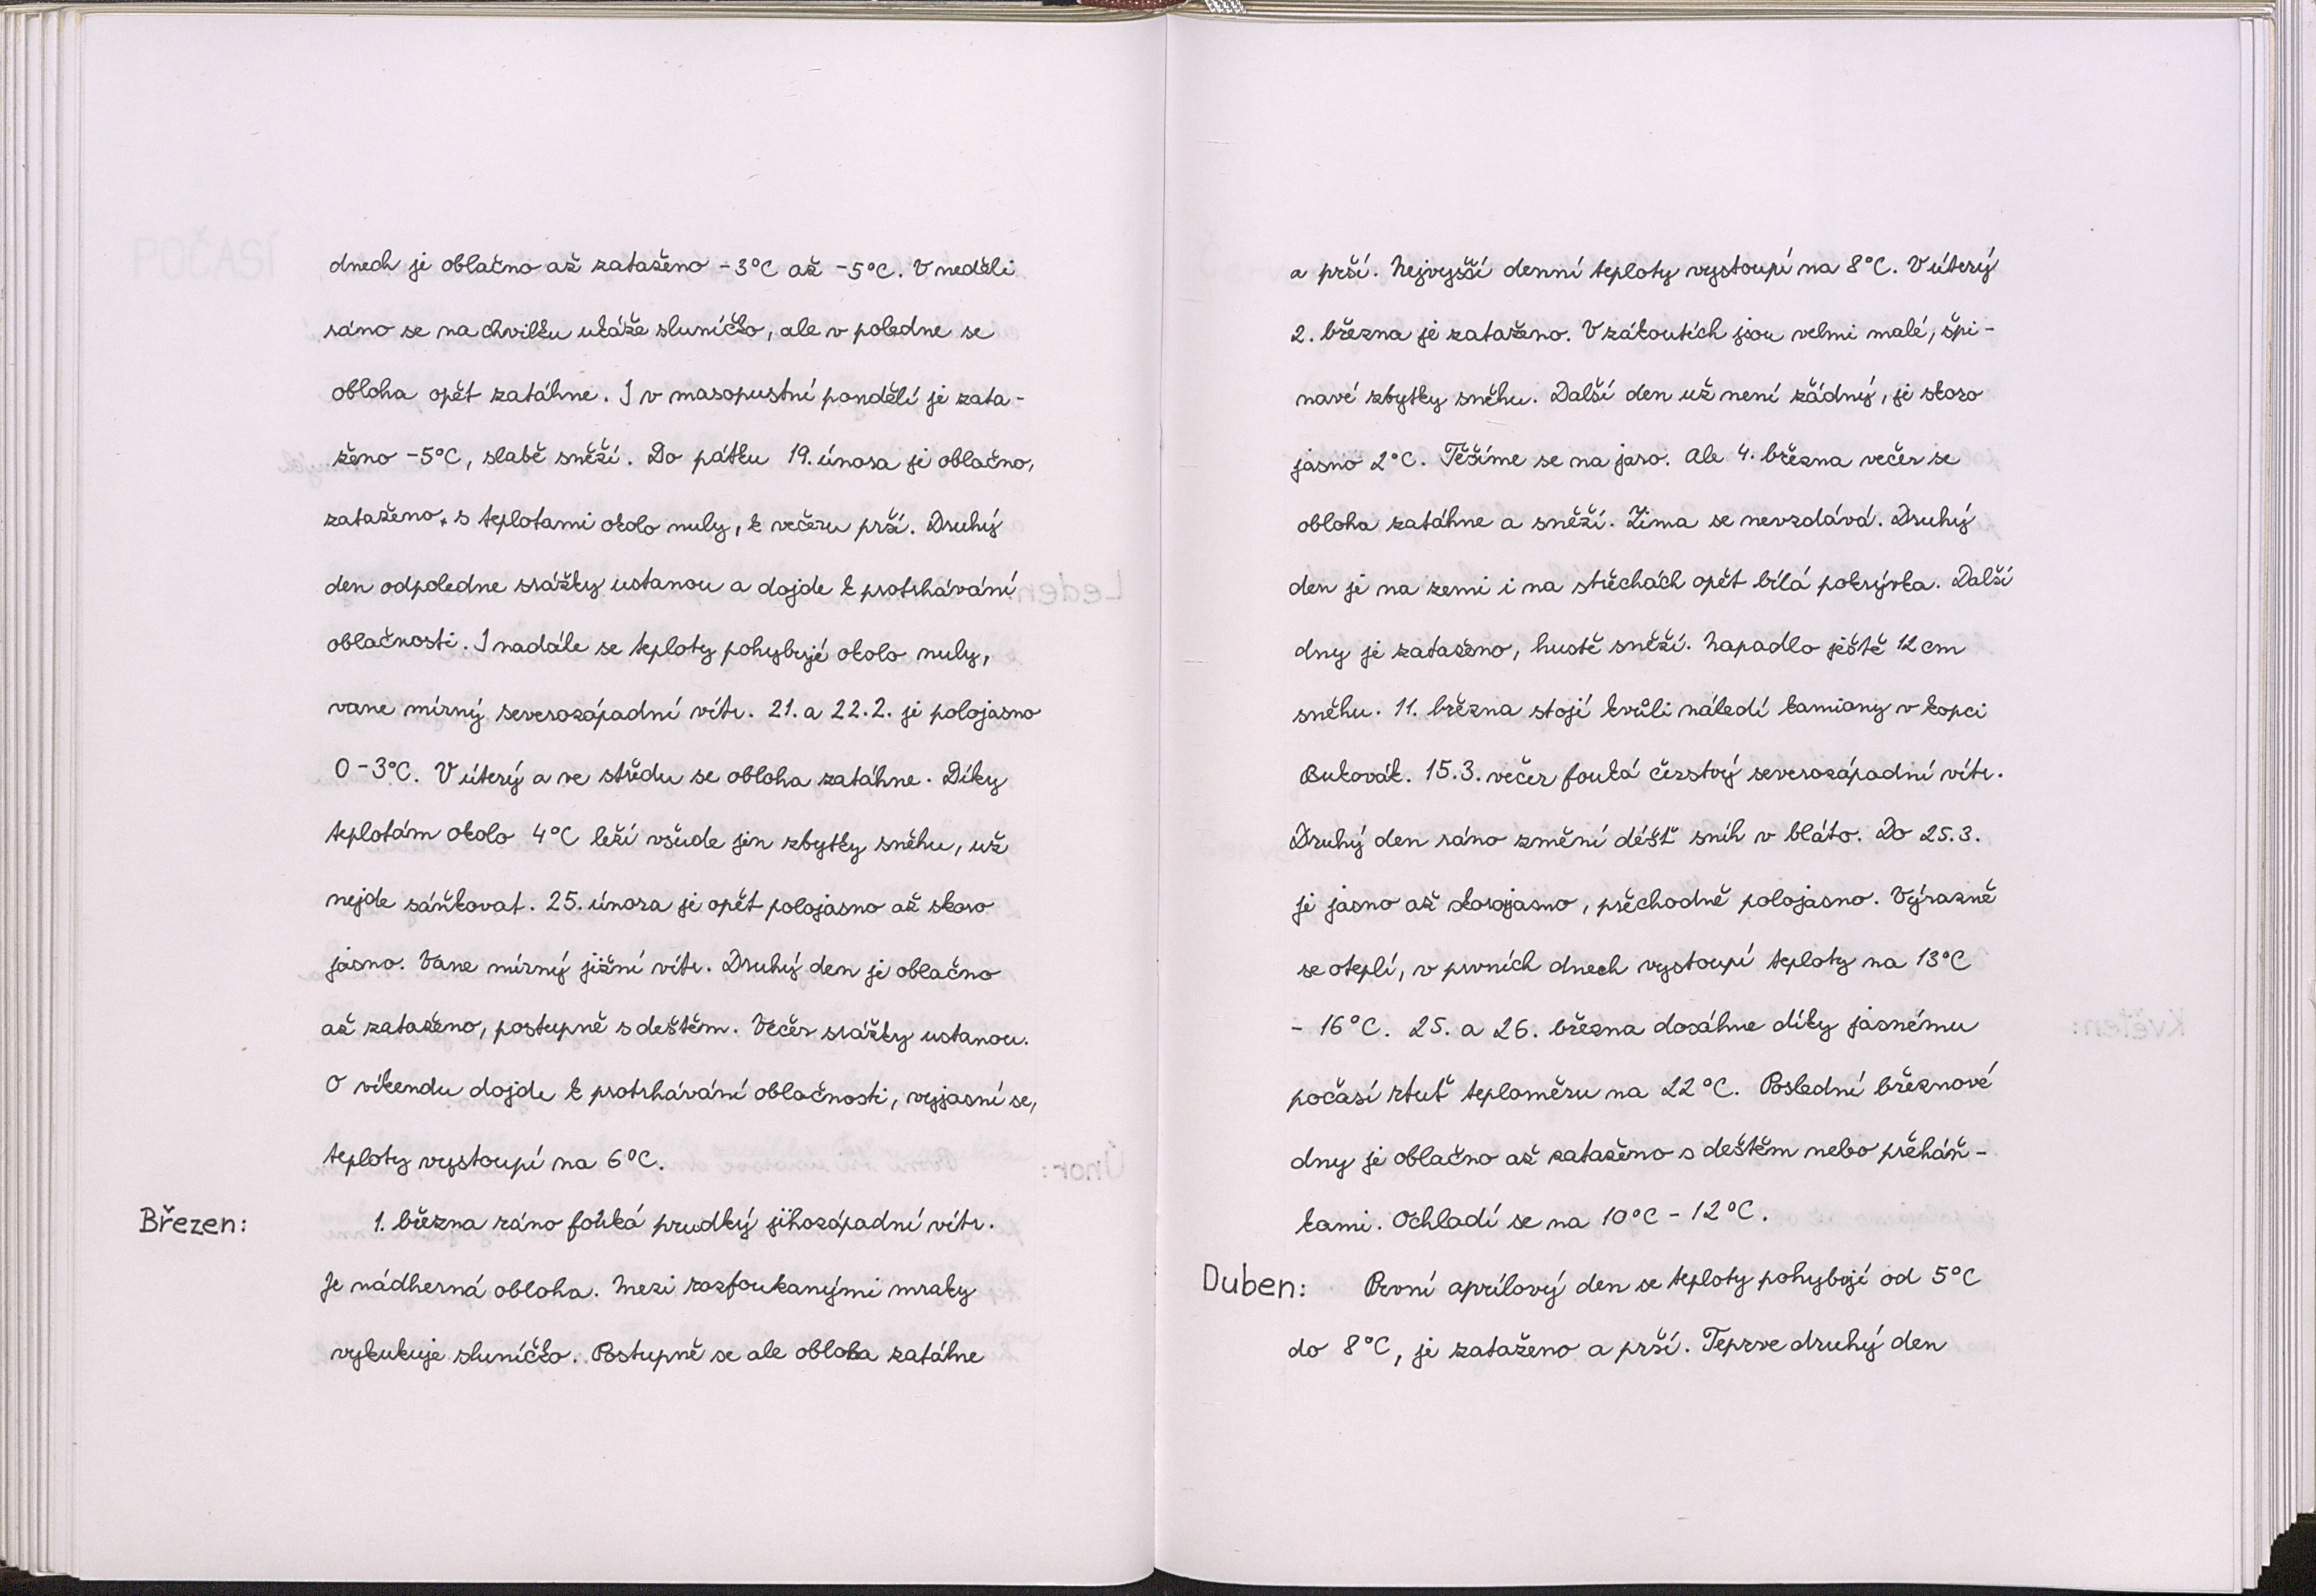 dnech je oblačno až zataženo -3°C až -5°C. V neděli
ráno se na chvilku ukáže sluníčko, ale v poledne se
obloha opět zatáhne. I v masopustní pondělí je zata-
ženo -5°C, slabě sněží. Do pátku 19. února je oblačno,
zataženo s teplotami okolo nuly, k večeru prší. Druhý
den odpoledne srážky ustanou a dojde k protrhávání
oblačnosti. I nadále se teploty pohybují okolo nuly,
vane mírný severozápadní vítr. 21. a 22.2. je polojasno
0-3°C. V úterý a ve středu se obloha zatáhne. Díky
teplotám okolo 4°C leží všude jen zbytky sněhu, už
nejde sáňkovat. 25. února je opět polojasno až skoro
jasno. Vane mírný jižní vítr. Druhý den je oblačno
až zataženo, postupně s deštěm. Večer srážky ustanou.
O víkendu dojde k protrhávání oblačnosti, vyjasní se,
teploty vystoupí na 6°C.
Březen: 1. března ráno fouká prudký jihozápadní vítr.
Je nádherná obloha. Mezi rozfoukanými mraky
vykukuje sluníčko. Postupně se ale obloha zatáhne
a prší. Nejvyšší denní teploty vystoupí na 8°C. V úterý
2. března je zataženo. V zákoutích jsou velmi malé, špi-
navé zbytky sněhu. Další den už není žádný, je skoro
jasno 2°C. Těšíme se na jaro. Ale 4. března večer se
obloha zatáhne a sněží. Zima se nevzdává. Druhý
den je na zemi i na střechách opět bílá pokrývka. Další
dny je zataženo, hustě sněží. Napadlo ještě 12 cm
sněhu. 11. března stojí kvůli náledí kamiony v kopci
Bukovák. 15.3. večer fouká čerstvý severozápadní vítr.
Druhý den ráno změní déšť sníh v bláto. Do 25.3.
je jasno až skorojasno, přechodně polojasno. Výrazně
se oteplí, v prvních dnech vystoupí teploty na 13°C
- 16°C. 25. a 26. března dosáhne díky jasnému
počasí rtuť teploměru na 22°C. Poslední březnové
dny je oblačno až zataženo s deštěm nebo přeháň-
kami. Ochladí se na 10°C - 12°C.
Duben: První aprílový den se teploty pohybují od 5°C
do 8°C, je zataženo a prší. Teprve druhý den